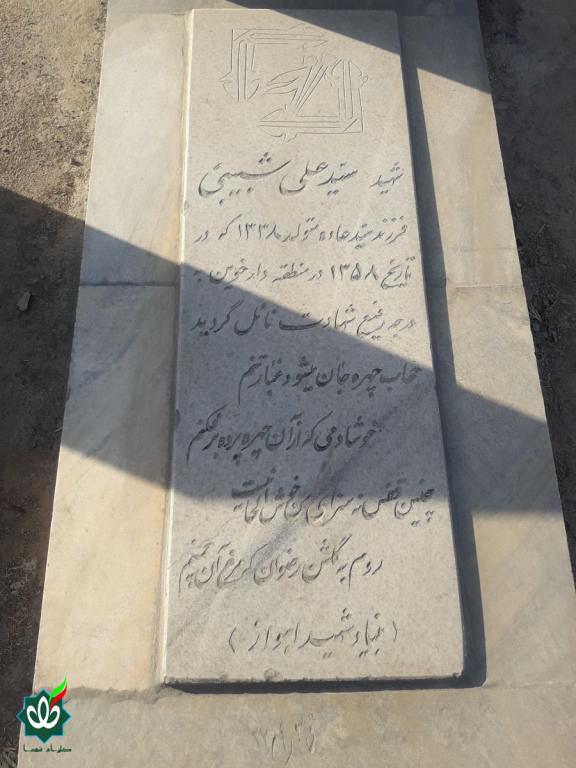 شهید سید علی شبیبی
فرزند سید عاده متولد ۱۳۳۸ که در
تاریخ ۱۳۵۸ در منطقه دارخوین به
درجه رفیع شهادت نائل گردید
حجاب چهره جان میشود غبار تنم
خوشا دمی که از آن چهره پرده برفکنم
چنین قفس نه سزای من خوش الحانیست
روم به گلشن رضوان که مرغ آن چمنم
(بنیاد شهید اهواز)